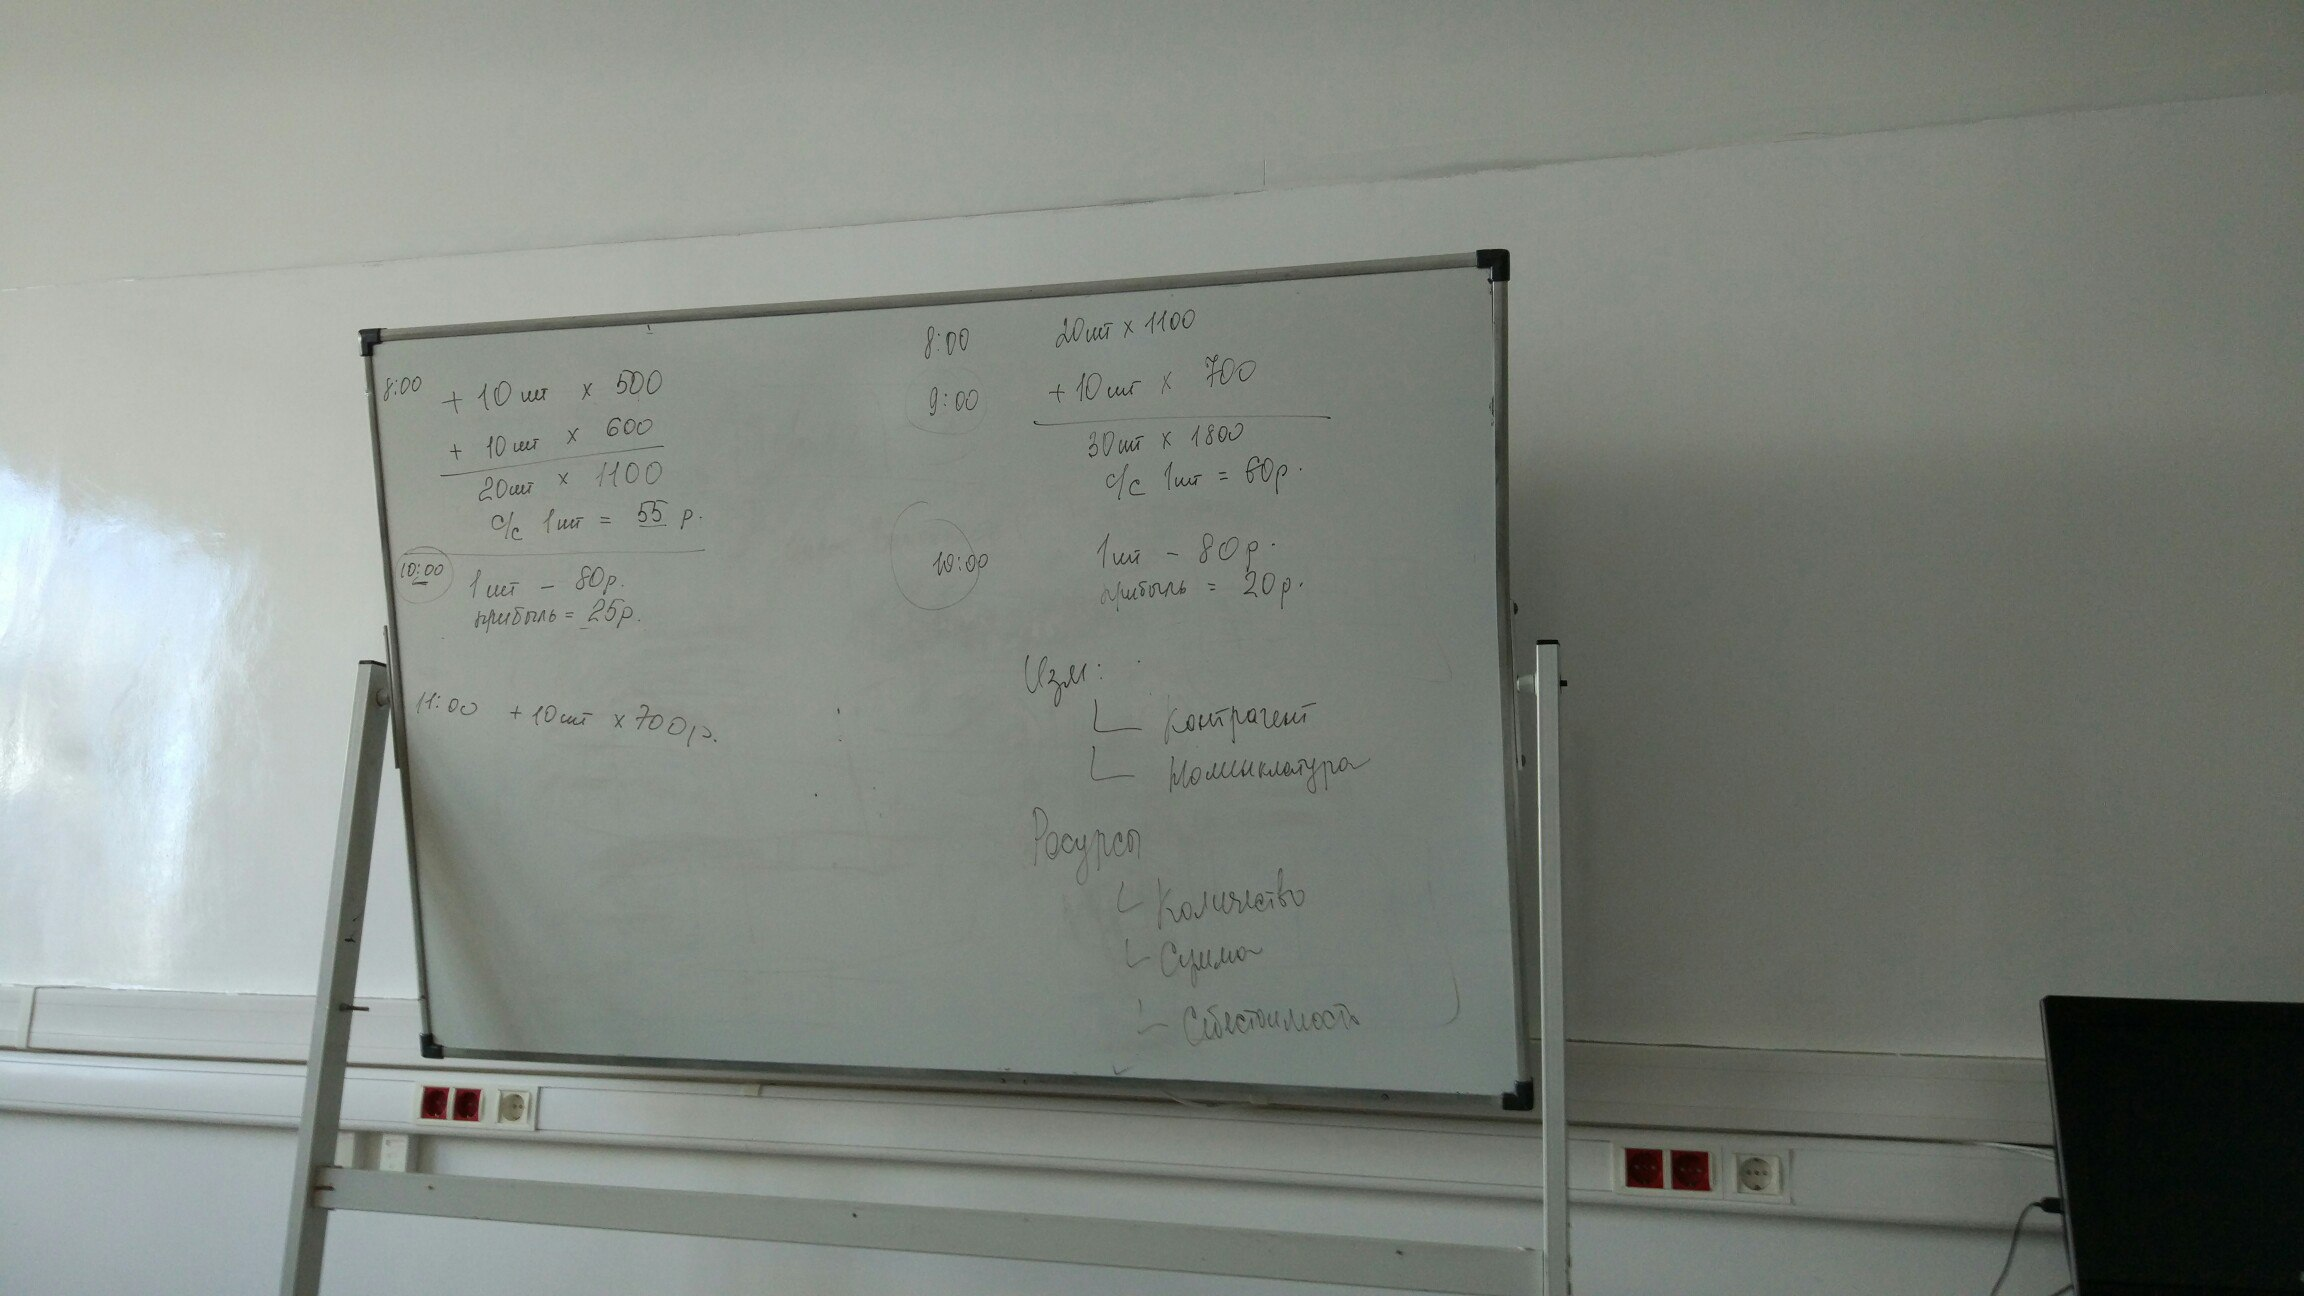 8:00 + 10 шт x 500
+ 10 шт x 600
20шт x 1100
с/с 1 шт = 55 р.
10:00 1 шт - 80р.
прибыль = 25р.
11:00 + 10 шт x 700р.
8:00 20шт x 1100
9:00 + 10 шт x 700
30шт x 1800
с/с 1шт = 60р.
10:00 1шт - 80р.
прибыль = 20р.
Изм:
Контрагент
Номенклатура
Ресурсы
Количество
Сумма
Себестоимость